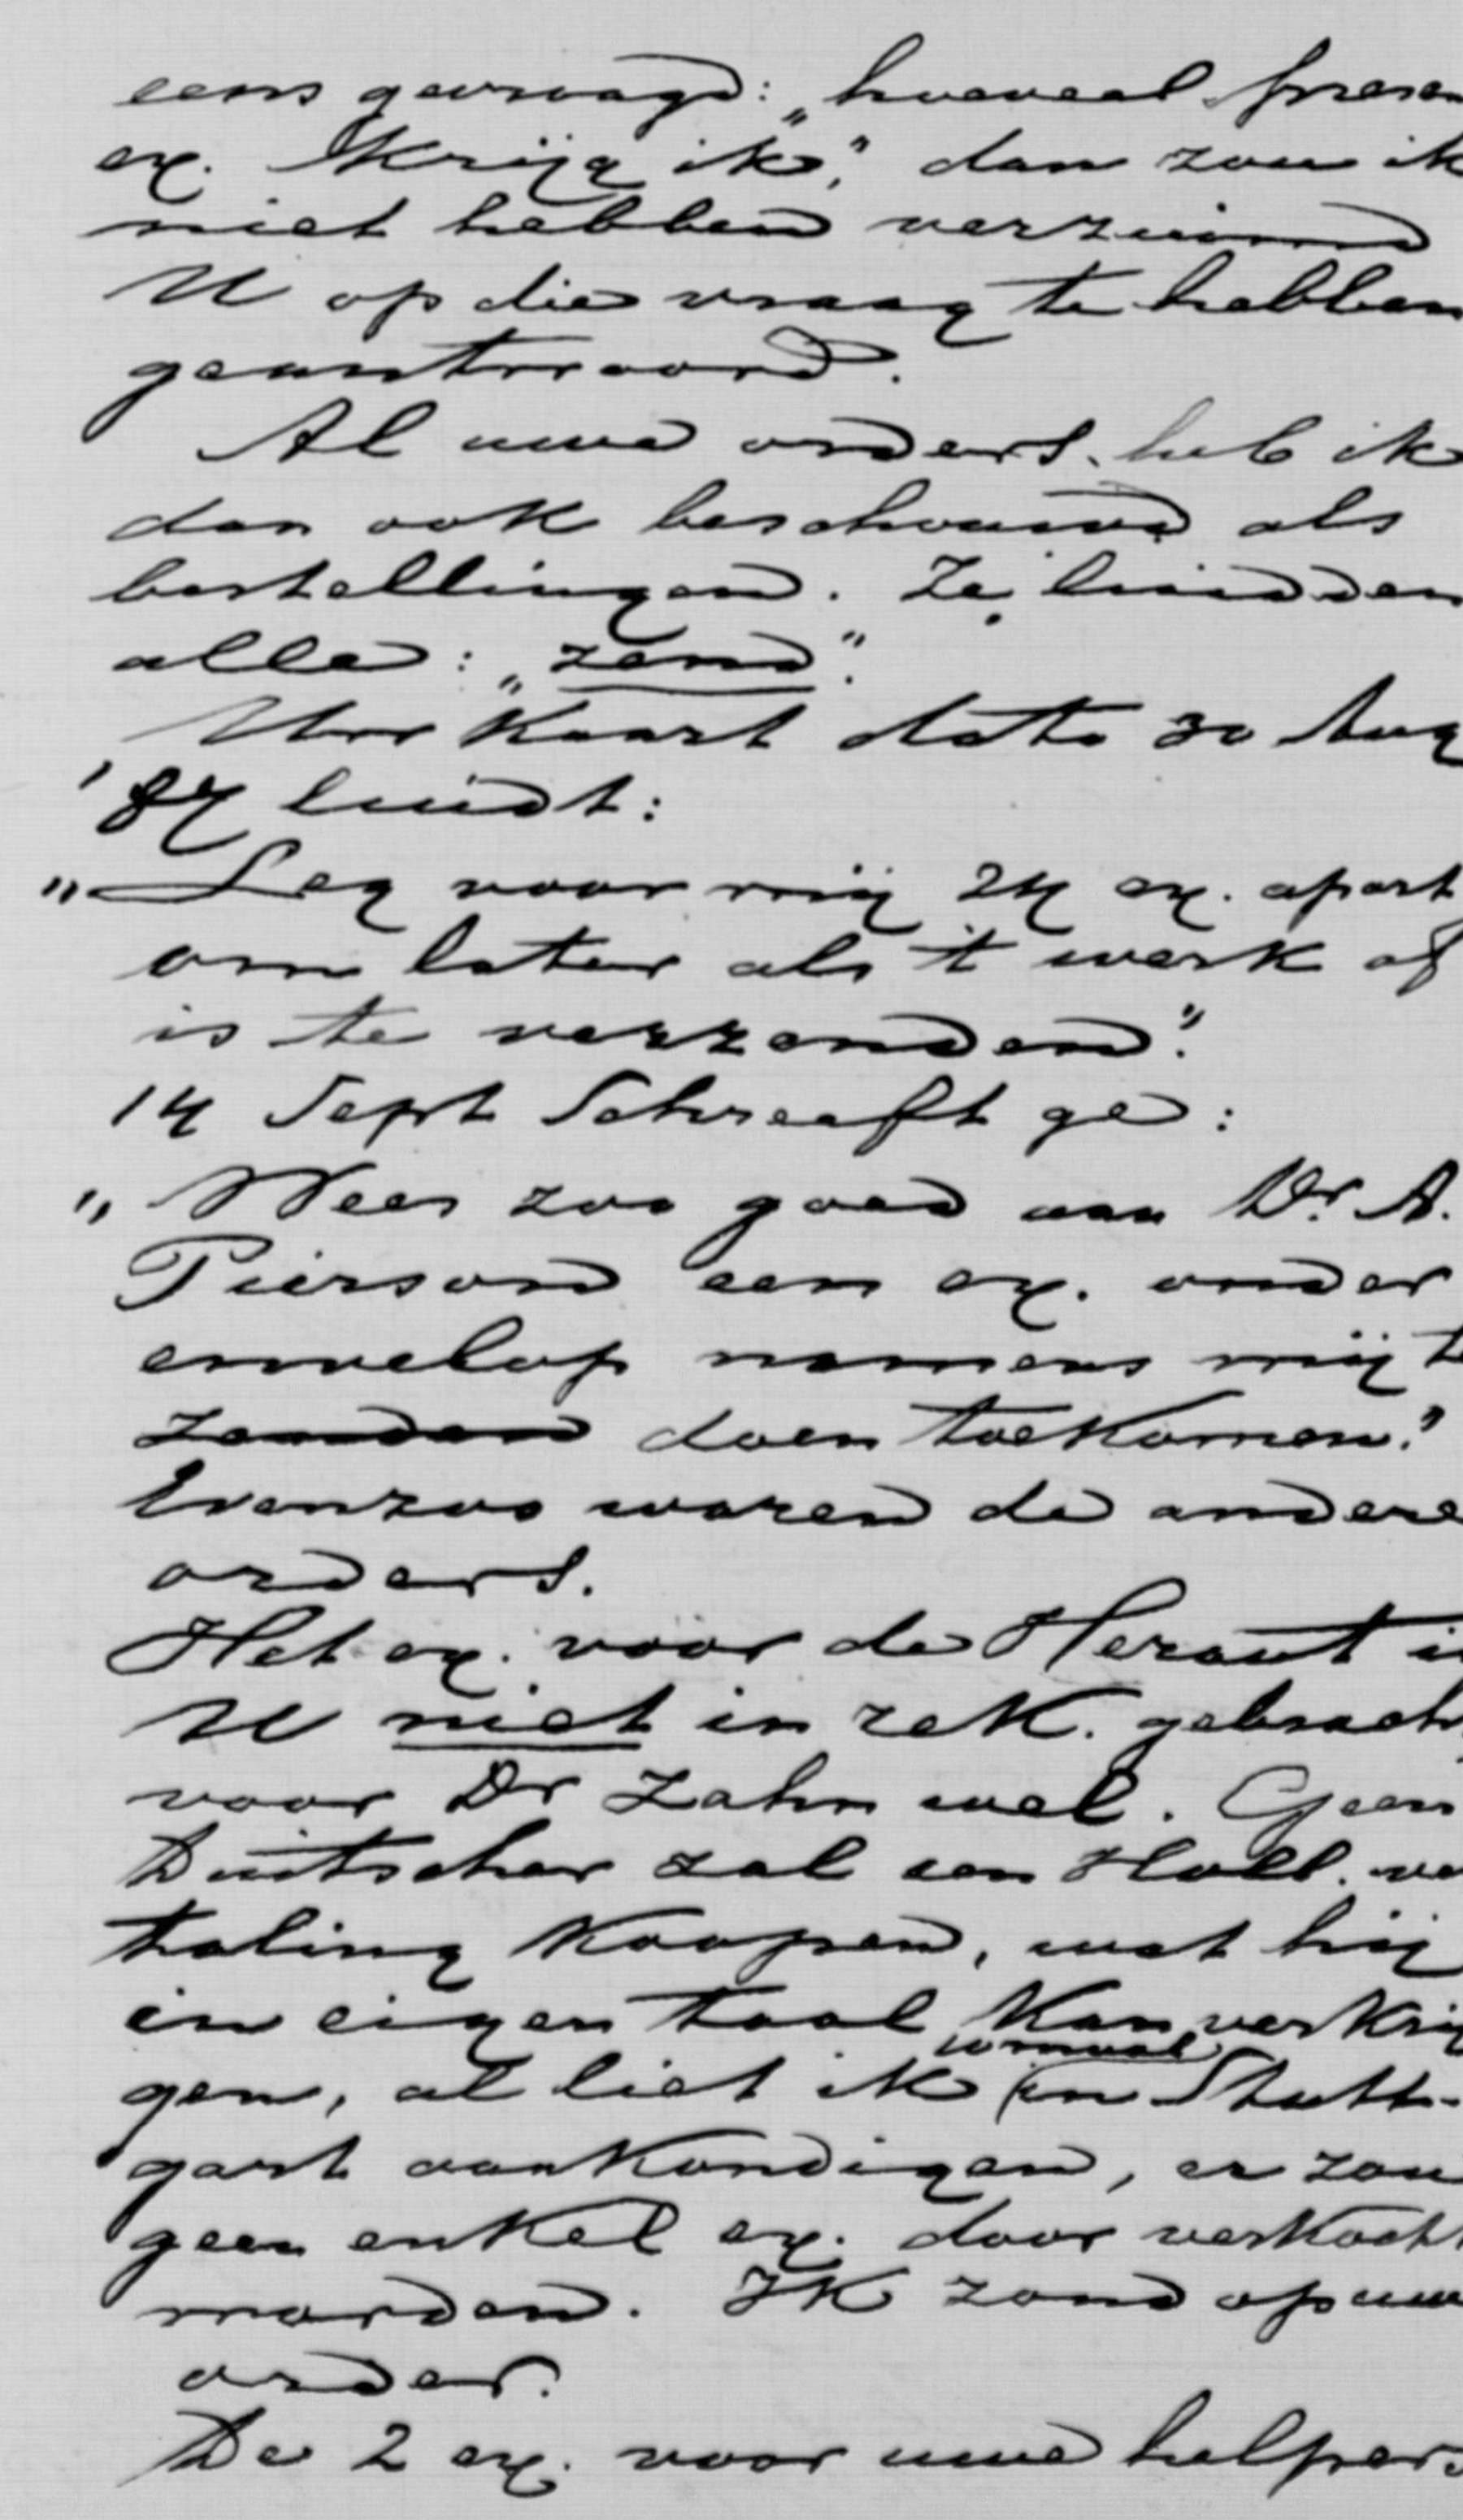 eens gevraagd: „hoeveel presen
ex. krijg ik", dan zou ik
niet hebben verzuimd
U op die vraag te hebben
geantwoord.
Al uwe orders heb ik
dan ook beschouwd als
bestellingen. Ze luidden
alle: „zend".
Uw kaart dato 30 Aug
'87 luidt:
„Leg voor mij 24 ex. apart
om later als 't werk af
is te verzenden".
14 Sept schreeft ge:
„Wees zoo goed aan Dr. A.
Pierson een ex. onder
envelop namens mij te
zenden doen toekomen."
Evenzoo waren de andere
orders.
Het ex. voor de Heraut i
U niet in rek. gebrach
voor Dr Zahn wel. Geen
Duitscher zal een Holl. ve
taling koopen, wat hij
in eigen taal kan verkrij
gen, al liet ik in Stutt-
gart aankondigen, er zou
geen enkel ex. door verkocht
worden. Ik zond op uw
order.
De 2 ex. voor uwe helpers